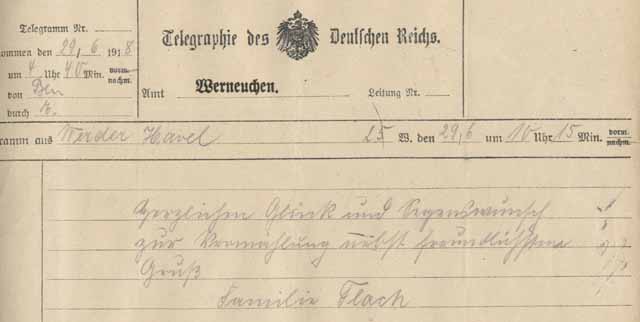 Telegramm Nr.
Telegraphie des Deutschen Reichs.
ommen den 29. 6 1918
um 4 Uhr 40 Min. vorm. nachm.
von Bln
durch
Amt Werneuchen. Leitung Nr.
ramm aus Werder Havel 25 W. den 29.6 um 10 Uhr 15 Min. vorm. nachm.
Herzlichen Glück und Segenswunsch
zur Vermählung nebst freundlichsten
Gruß
Familie Flach